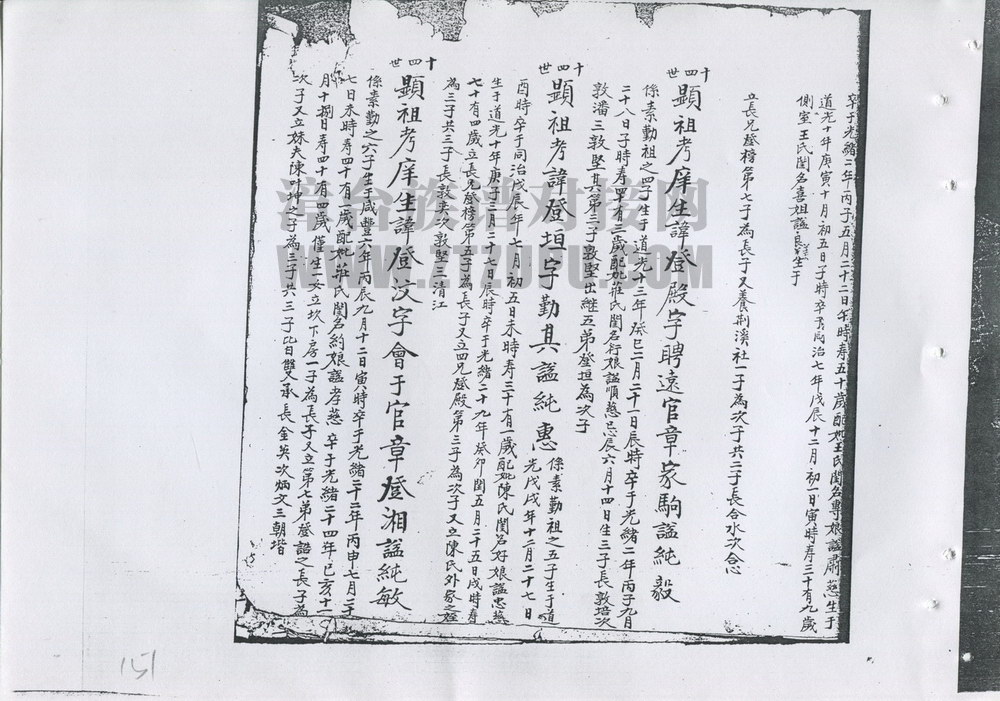 卒于光緒二年丙子五月二十二日午時寿五十歲配妣王氏閨名專娘謚肅慈生于
道光十年庚寅十月初五日子時卒于同治七年戊辰十二月初一日寅時寿三十有九歲
側室王氏閨名喜姐謚良生于
立長兄登榜第七子為長子又養荆溪社一子為次子共二子長合水次合心
十四世
顯祖考庠生諱登殿字聘遠官章家駒謚純毅
係素勤祖之四子生于道光十三年癸巳二月二十一日辰時卒于光緒二年丙子九月
二十八日子時寿四十有三歲配妣莊氏閨名行娘謚順慈忌辰六月十四日生三子長敦培次
敦潘三敦堅其第三子敦堅出継五弟登垣為次子
十四世
顯祖考諱登垣字勤其謚純惠
係素勤祖之五子生于道
光戊戌年十二月二十七日
酉時卒于同治戊辰年七月初五日未時寿三十有一歲配妣陳氏閨名好娘謚忠慈
生于道光十年庚子三月二十七日辰時卒于光緒二十九年癸卯閏五月二十五日戌時寿
七十有四歲立長兄登榜第五子為長子又立四兄登殿第三子為次子又立陳氏外祭之姪
為三子共三子長敦英次敦堅三清江
十四世
顯祖考庠生諱登汶字會于官章登湘謚純敏
係素勤之六子生于咸豐六年丙辰九月十二日寅時卒于光緒二十二年丙申七月二十
七日未時寿四十有一歲配妣莊氏閨名約娘謚孝慈 卒于光緒二十四年己亥十一
月十捌日寿四十有四歲僅生一女立坎下房一子為長子又立第七弟登誥之長子為
次子又立妹夫陳叶坤之子為三子共三子比日雙承長金英次炳文三朝堦
151
洽合族谱对接网
WWW.ZTZUPU.COM